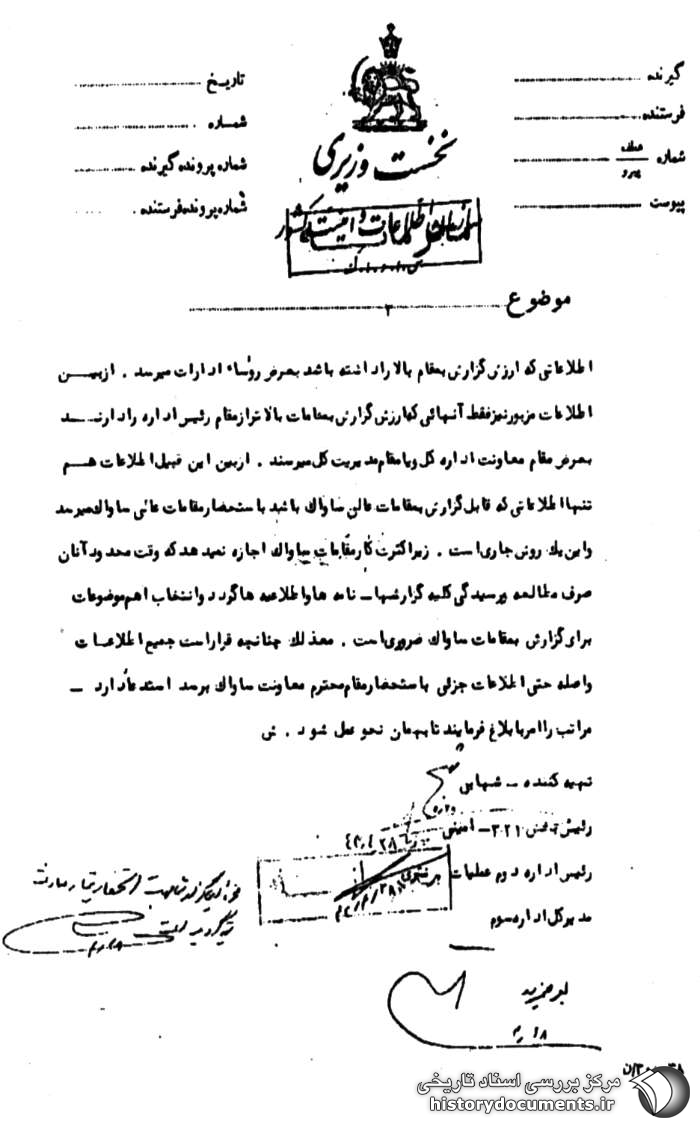 گیرنده
فرستنده
شماره
پیوست
تاریخ
شماره
شماره پرونده گیرنده
شماره پرونده فرستنده
نخست وزیری
سازمان اطلاعات و امنیت کشور
موضوع
۲
اطلاعاتی که ارزش گزارش بمقام بالا را داشته باشد بعرض رؤساء ادارات میرسد . از بیــن
اطلاعات مزبور نیز فقط آنهائی که ارزش گزارش بمقامات بالاتر از مقام رئیس اداره را دارنــد
بعرض مقام معاونت اداره کل و یا مقام مدیریت کل میرسند . از بین این قبیل اطلاعات هــم
تنها اطلاعاتی که قابل گزارش بمقامات عالی ساواک باشد باستحضار مقامات عالی ساواک میرسد
و این یک روش جاری است . زیرا کثرت کار مقامات ساواک اجازه نمیدهد که وقت محدود آنان
صرف مطالعه و رسیدگی کلیه گزارشهاـ نامه ها و اطلاعیه ها گردد و انتخاب اهم موضوعات
برای گزارش بمقامات ساواک ضروری است . معذلک چنانچه قرار است جمیع اطلاعــات
واصله حتی اطلاعات جزئی باستحضار مقام محترم معاونت ساواک برسد استدعا دارد ـ
مراتب را امر بابلاغ فرمایند تا بهمان نحو عمل شود . ش
تهیه کننده ـ شهابی
رئیس بخش ۳۲۱ـ امینی
رئیس اداره دوم عملیات
مدیر کل اداره سوم
مرکز بررسی اسناد تاریخی
historydocuments.ir